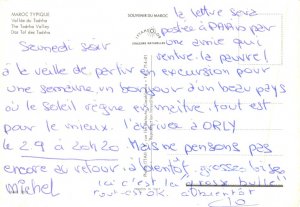 MAROC TYPIQUE
Vallée du Todrha
The Todrha Valley
Das Tal des Todrha
SOUVENIR DU MAROC
la lettre sera
postée à PARIS par
une amie qui
rentre la pauvre !
Samedi soir
à la veille de partir en excursion pour
une semaine un bonjour d'un beau pays
où le soleil règne en maître. tout est
pour le mieux. j'arrive à ORLY
le 2.9 à 20h20. Mais ne pensons pas
encore au retour. à bientôt grosse bises
Michel
ici c'est la grosse bulle !!
à bientôt